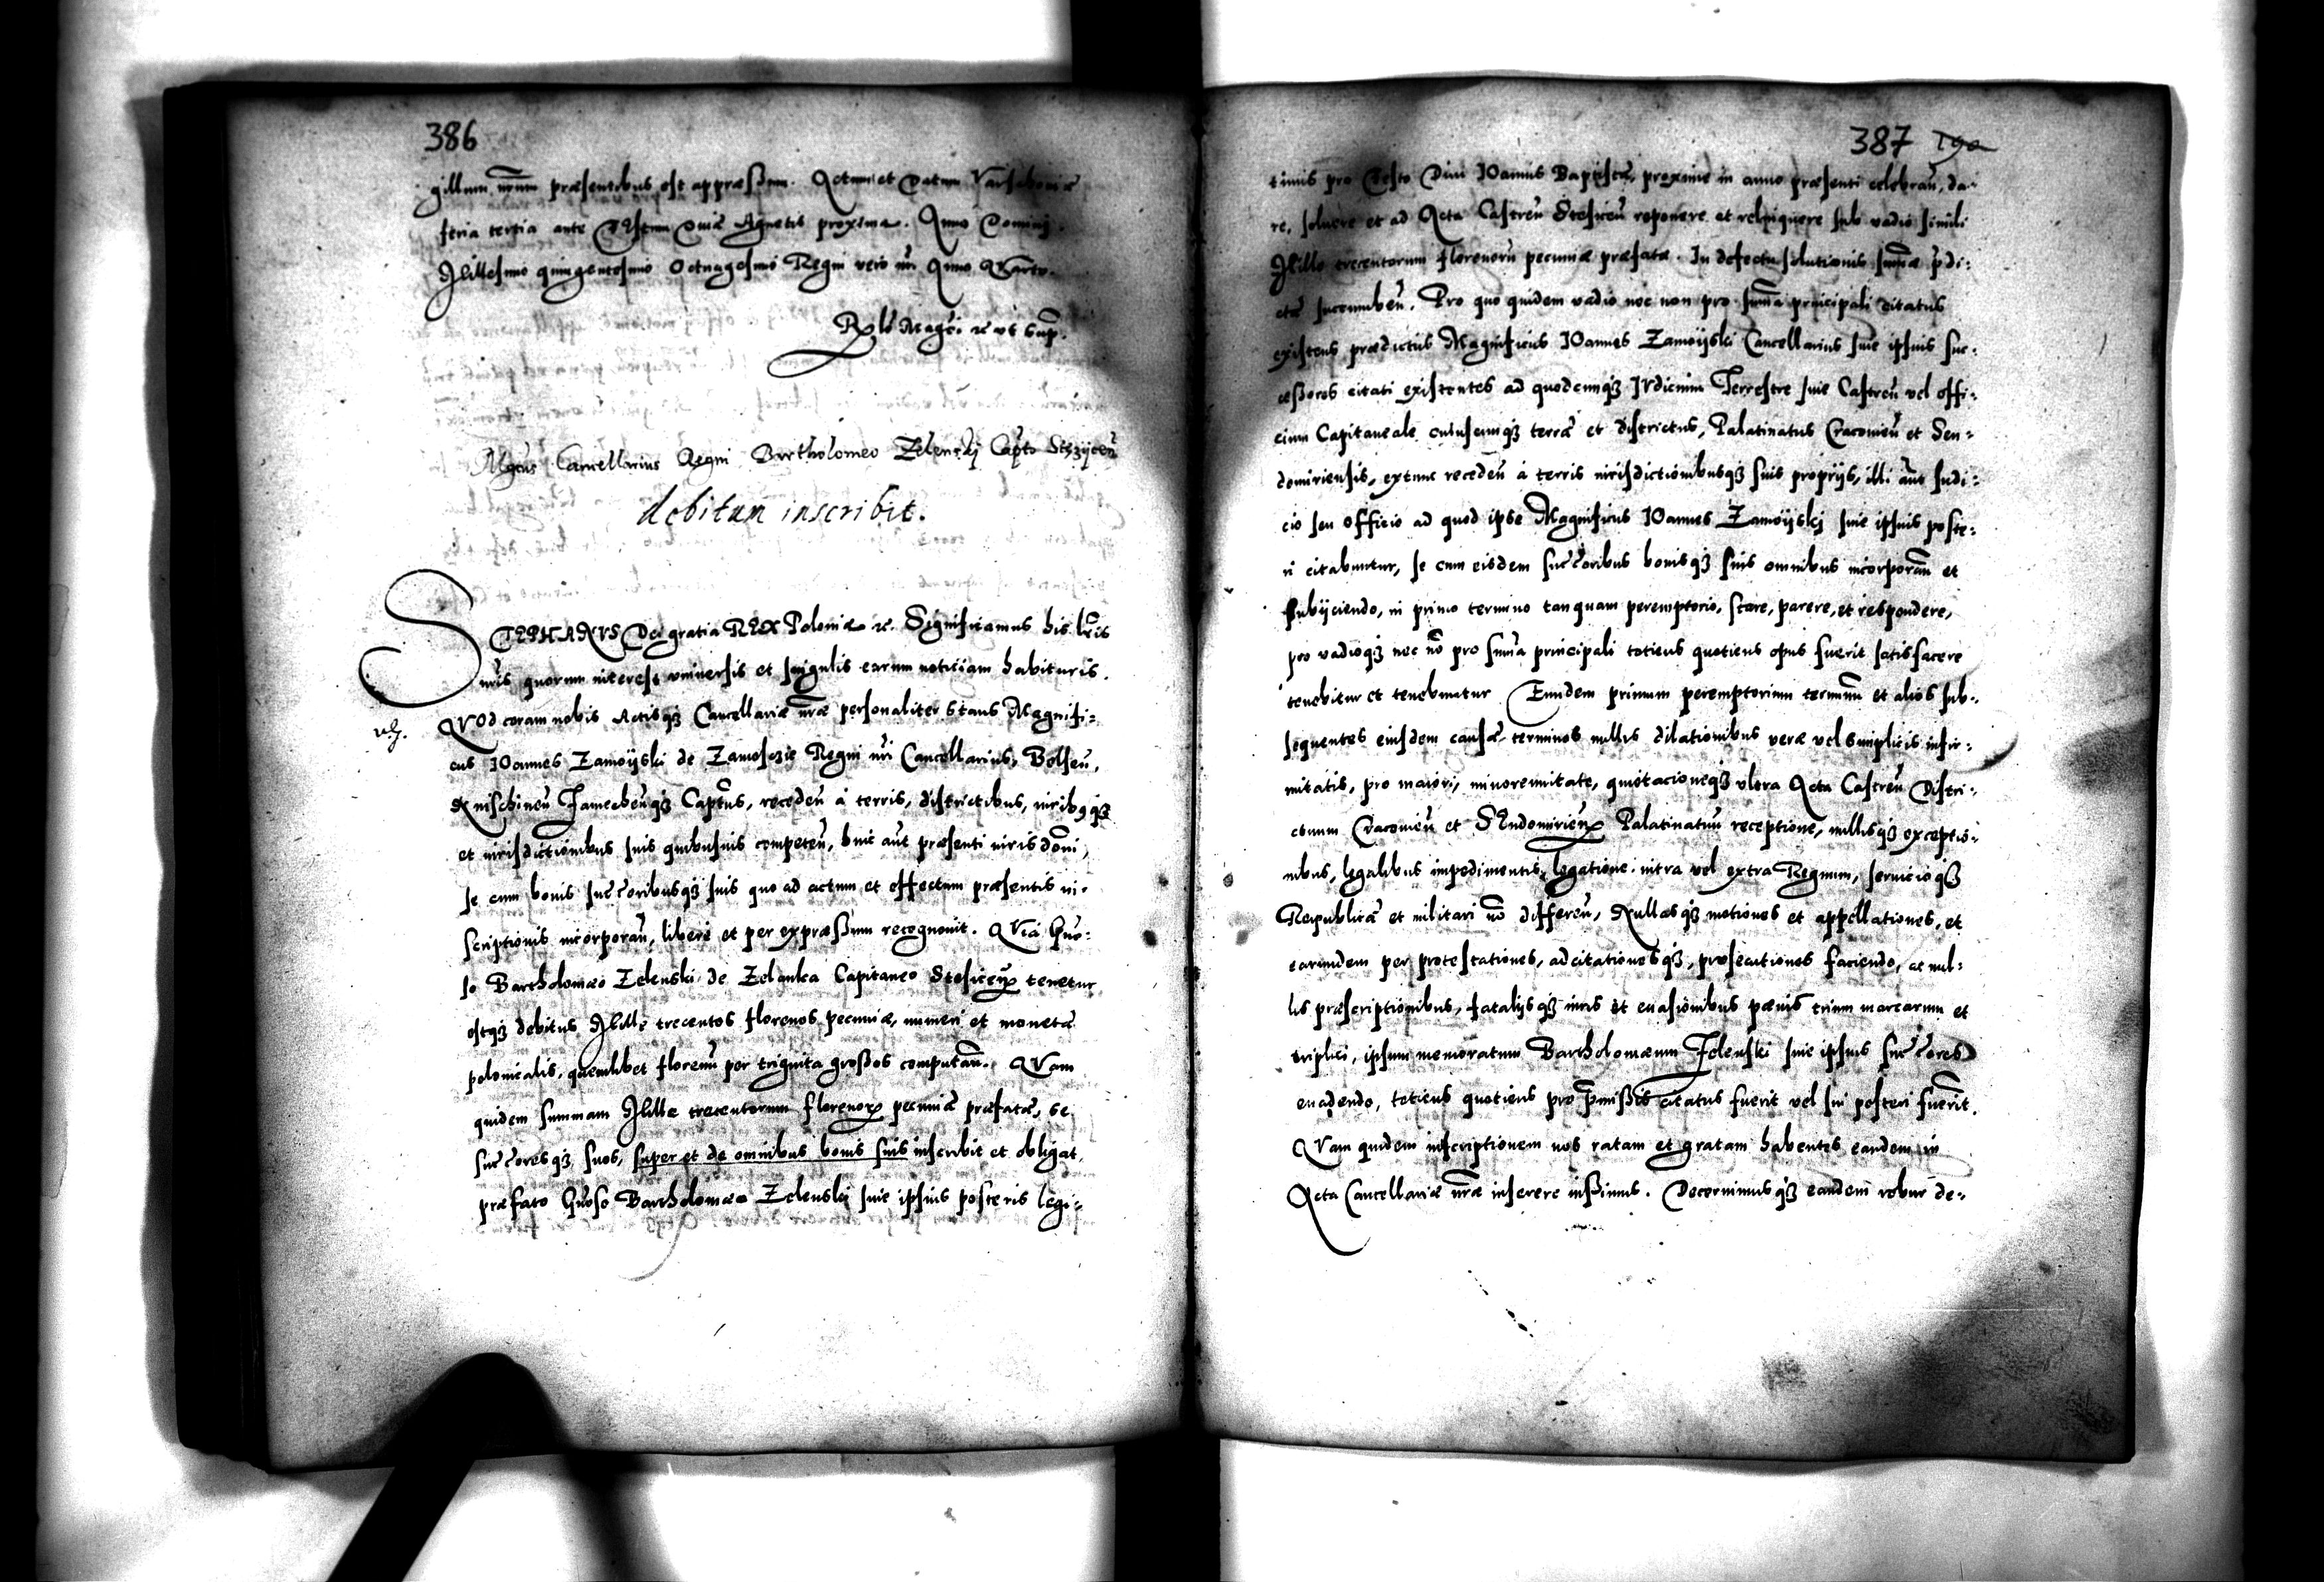 386
gillum nr̃um præsentibus est appræßum. Actum et Datum Varschoviæ
feria tertia ante Festum Divæ Agnetis proxima. Anno Domini
Millesimo quingentesimo Octuagesimo Regni vero nr̃i Anno Quarto.
Rel͞o Mag͞ci &c ut sup͞.
Mg͞cus Cancellarius Regni Bartholomeo Zelenski Capt͞o Stezycen͞
debitum inscribit.
STEPHANVS Dei gratia REX Poloniæ &c. Significamus his lr͞is
nr͞is quorum interest universis et singulis earum noticiam habituris.
QVod coram nobis Actisq̃ Cancellariæ nr͞æ personaliter stans Magnifi-
cus Ioannes Zamoijski de Zamoscie Regni nr͞i Cancellarius, Belsen͞,
Knischinen͞ Zamechen͞q̃ Capt͞us, receden͞ à terris, districtibus, iuribq̃
et iurisdictionibus suis quibusuis competen͞, huic aut͞ præsenti iuris dom͞i,
se cum bonis succ͞oribusq̃ suis quo ad actum et effectum præsentis in-
scriptionis incorporan͞, liberè et per expræßum recognouit. QVia Gn͞o-
so Bartholomæo Zelenski de Zelanka Capitaneo Stesicen͞ tenetur
estq̃ debitus Mille trecentos florenos pecuniæ, numeri et monetæ
polonicalis, quemlibet floren͞u per triginta großos computan͞. QVam
quidem summam Mille trecentorum florenor͞ pecuniæ præfatæ, se
succ͞oresq̃ suos, super et de omnibus bonis suis inscribit et obligat,
præfato Gn͞oso Bartholomæo Zelenski siue ipsius posteris legi-
387
timis pro Festo Diui Ioannis Baptistæ, proxime in anno præsenti celebran͞, da-
re, soluere et ad Acta Castren͞ Stesicen͞ reponere et relinquere sub vadio simili
Mille trecentorum florenoru͞ pecuniæ præfatæ. In defectu solutionis sum͞æ p͞di-
ctæ succumben͞. Pro quo quidem vadio nec non pro sum͞a principali citatus
existens prædictus Magnificus Ioannes Zamoijski Cancellarius siue ipsius suc-
ceßores citati existentes ad quodcunq̃ Iudicium Terrestre siue Castren͞ vel offi-
cium Capitaneale cuiuscunq̃ terræ et districtus, Palatinatus Cracouien͞ et Sen-
domiriensis, extunc receden͞ à terris iurisdictionibusq̃ suis proprijs, illi aut͞ Iudi-
cio seu officio ad quod ipse Magnificus Ioannes Zamoijskj siue ipsius poste-
ri citabuntur, se cum eisdem succ͞oribus bonisq̃ suis omnibus incorporan͞ et
subijciendo, in primo termino tanquam peremptorio, stare, parere, et respondere,
pro vadioq̃ nec no͞ pro sum͞a principali totiens quotiens opus fuerit satisfacere
tenebitur et tenebuntur Eundem primum peremptorium terminu͞ et alios sub-
sequentes eiusdem causæ terminos nullis dilationibus veræ vel simplicis infir-
mitatis, pro maiori, minorennitate, quietacioneq̃ ultra Acta Castren͞ Distri-
ctuum Cracouien͞ et SEndomirien͞ Palatinatuu͞ receptione, nullisq̃ exceptio-
nibus, legalibus impedimentis, legatione intra vel extra Regnum, seruicioq̃
Reipublicæ et militari no͞ differen͞, Nullasq̃ motiones et appellationes, et
earundem per protestationes, adcitationesq̃, prosecutiones faciendo, ac nul-
lis præscriptionibus, fatalijsq̃ iuris et euasionibus pœnis trium marcarum et
triplici, ipsum memoratum Bartholomæum Zelenski siue ipsius succ͞ores
euadendo, totiens quotiens pro p͞mißis citatus fuerit vel sui posteri fuerit͞.
QVam quidem inscriptionem nos ratam et gratam habentes eandem in
Acta Cancellariæ nr͞æ inserere iußimus. Decernimusq̃ eandem robur de-